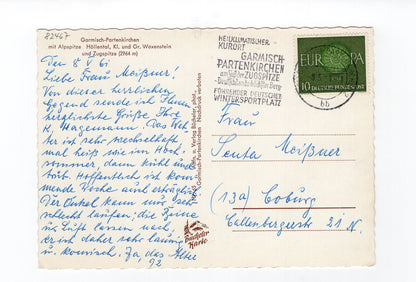 82467
Garmisch-Partenkirchen
mit Alpspitze Höllental, Kl. und Gr. Waxenstein
und Zugspitze (2964 m)
Den 8 V 61
Liebe Frau Meißner!
Von dieser herrlichen
Gegend sende ich Ihnen
herzlichste Grüße Ihre
K. Hagemann. Das Wet-
ter ist sehr wechselhaft,
mal heiß wie im Hoch-
sommer, dann kühl und
Hoffentlich ist kom-
mende Woche auch erträglich.
Der Onkel kann nur sehr
schlecht laufen; die Beine
u. Luft lassen nach,
er ist daher sehr launig
u. komisch. Ja, das Alter
Verlag Bauheler
Garmisch-Partenkirchen Nachdruck verboten
Karte
HEILKLIMATISCHER
KURORT
GARMISCH-
PARTENKIRCHEN
am Fuß der ZUGSPITZE
FÜHRENDER DEUTSCHER
WINTERSPORTPLATZ
bb
EUROPA
10 DEUTSCHE BUNDESPOST
Frau
Senta Meißner
(13a) Coburg
Callenbergerstr. 21 N.